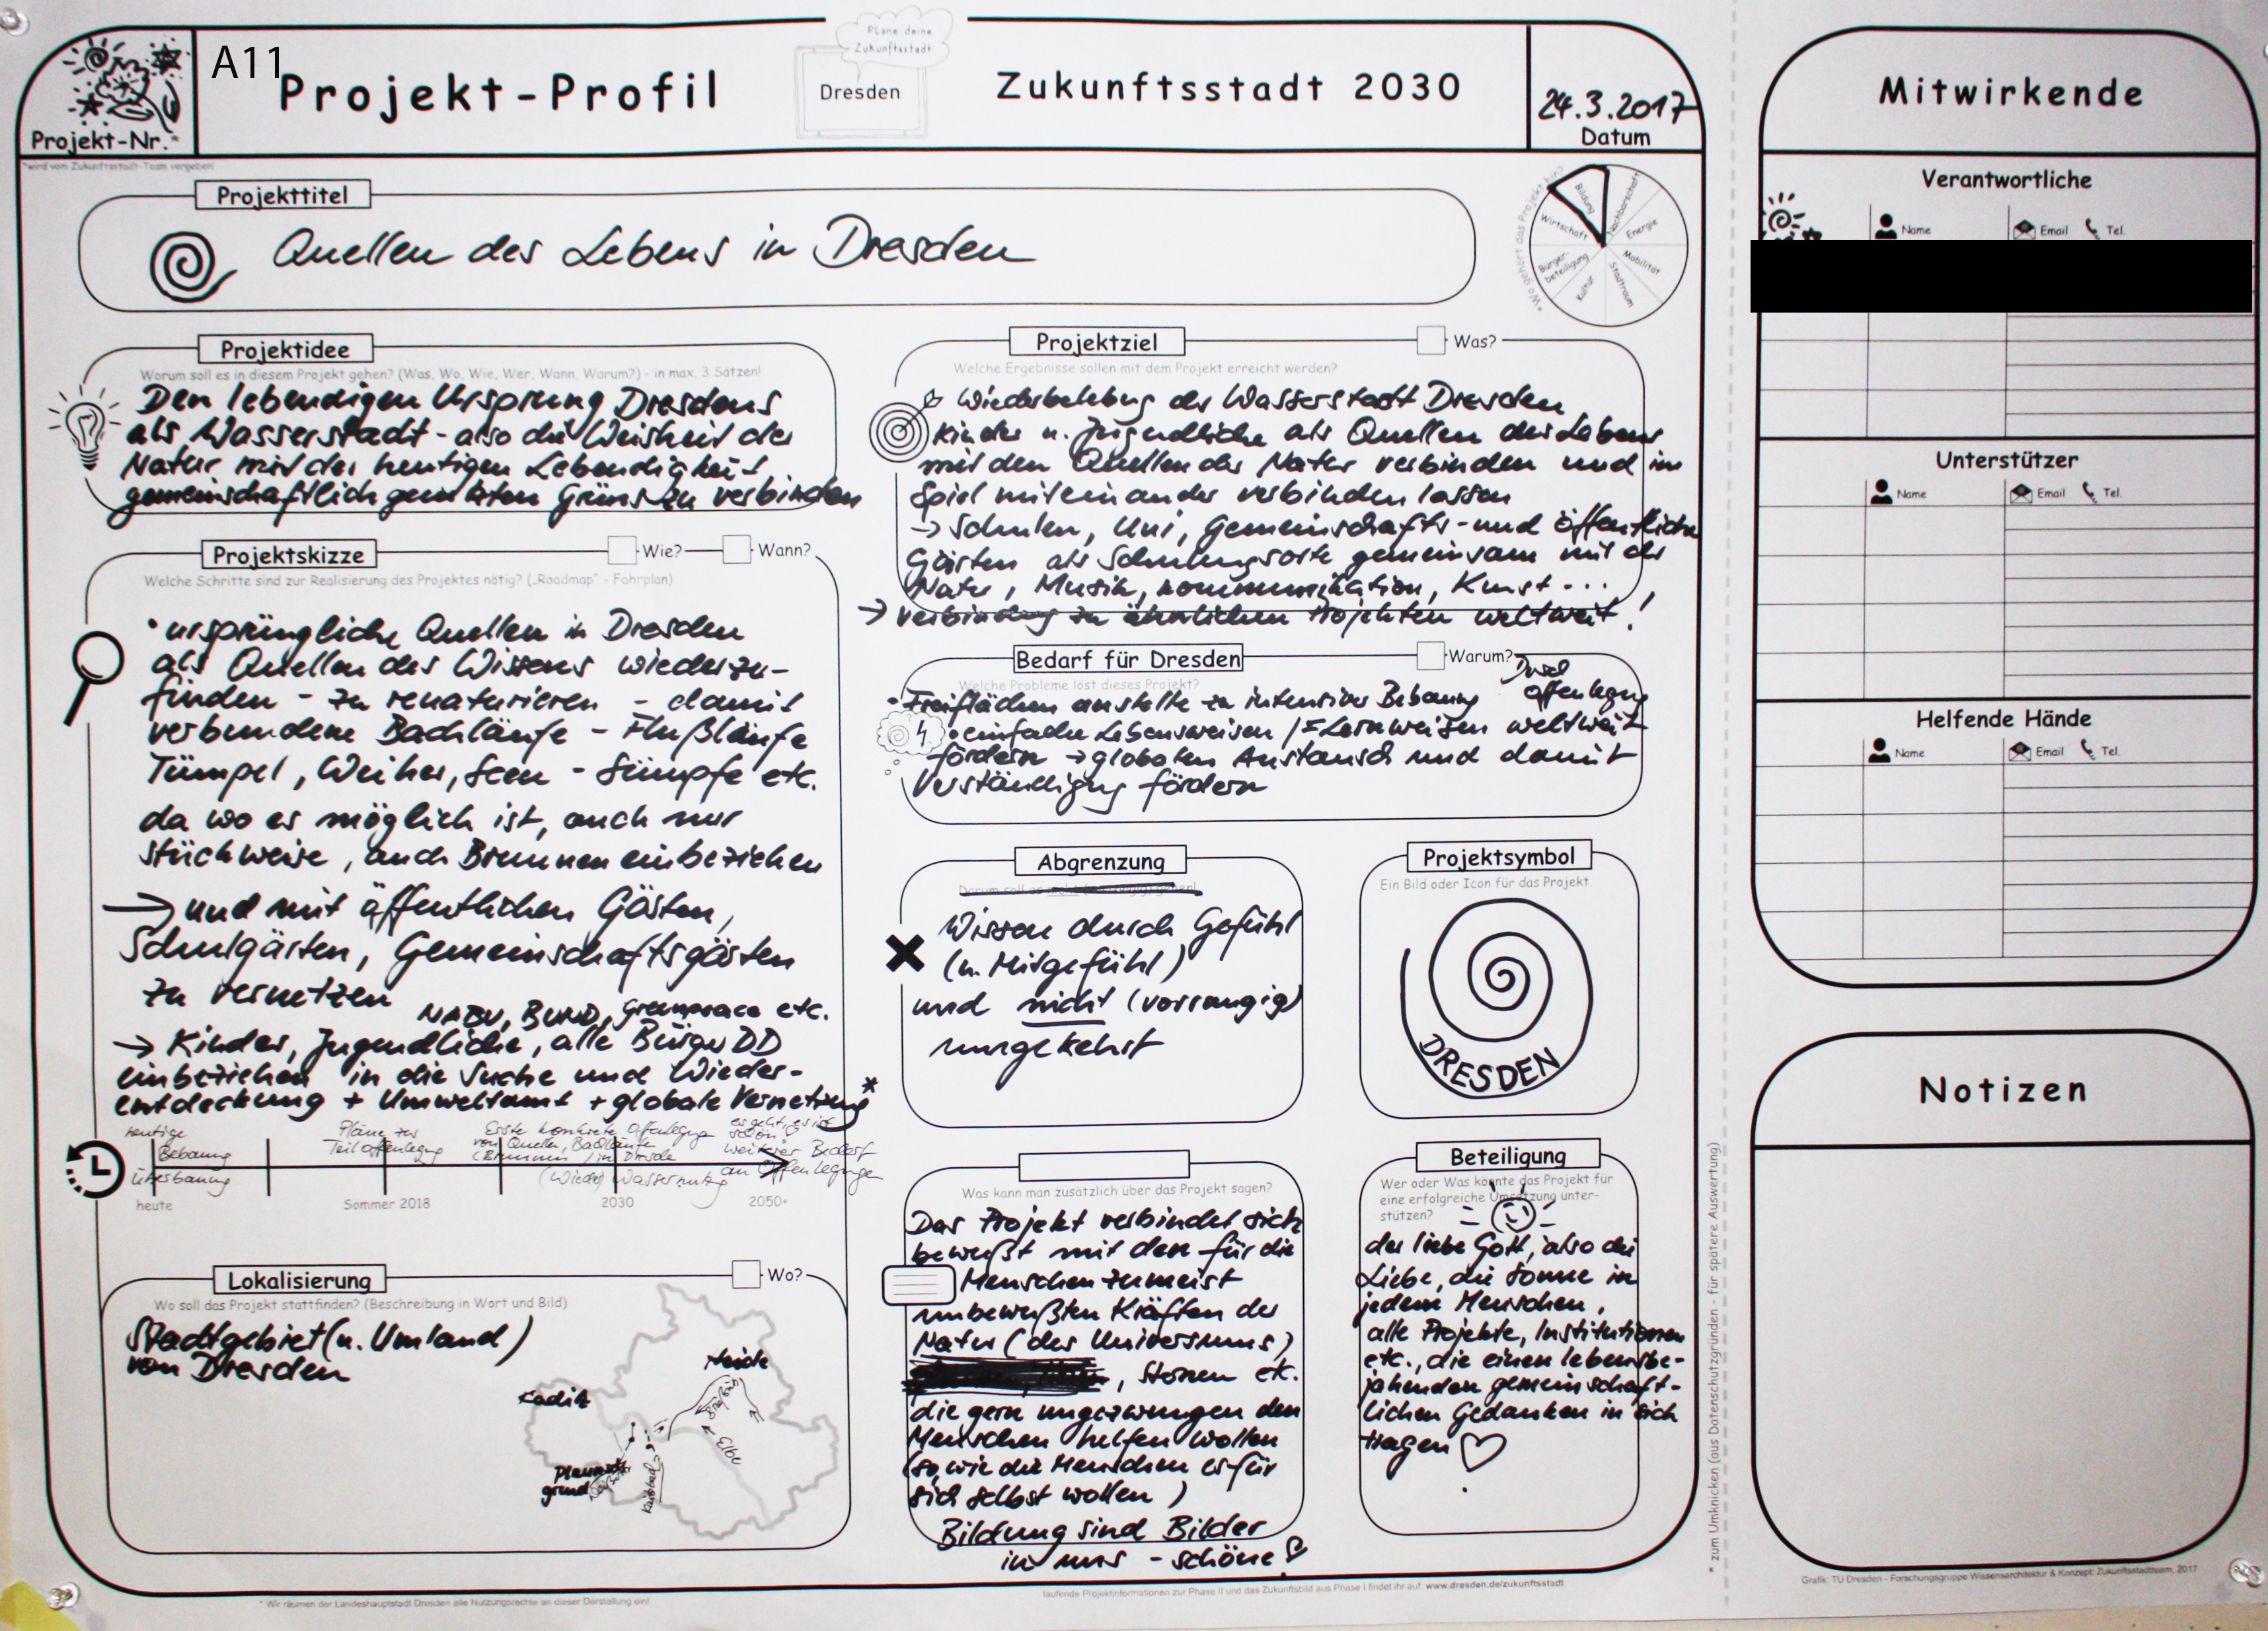 A11
Projekt-Profil
Plane deine
Zukunftsstadt
Dresden
Zukunftsstadt 2030
24.3.2017
Datum
Projekt-Nr.*
*wird vom Zukunftsstadt-Team vergeben!
Projekttitel
Quellen des Lebens in Dresden
*Wo gehört das Projekt hin?
Bildung
Nachbarschaft
Energie
Mobilität
Stadtraum
Kultur
Bürger-
beteiligung
Wirtschaft
Projektidee
Worum soll es in diesem Projekt gehen? (Was, Wo, Wie, Wer, Wann, Warum?) - in max. 3 Sätzen!
Den lebendigen Ursprung Dresdens
als Wasserstadt - also die Weisheit der
Natur mit der heutigen Lebendigkeit
gemeinschaftlich genutzten Grüns zu verbinden
Projektskizze
Wie?
Wann?
Welche Schritte sind zur Realisierung des Projektes nötig? („Roadmap" - Fahrplan)
• ursprüngliche Quellen in Dresden
als Quellen des Wissens wiederzu-
finden - zu renaturieren - damit
verbundene Bachläufe - Flußläufe
Tümpel, Weiher, Seen - Sümpfe etc.
da wo es möglich ist, auch nur
stückweise, auch Brunnen einbeziehen
→ und mit öffentlichen Gärten,
Schulgärten, Gemeinschaftsgärten
zu vernetzen
NABU, BUND, Greenpeace etc.
→ Kinder, Jugendliche, alle Bürger DD
einbeziehen in die Suche und Wieder-
entdeckung + Umweltamt + globale Vernetzung *
heutige
Bebauung
Überbauung
Pläne zur
Teiloffenlegung
Erste konkrete Offenlegung
von Quellen, Bachläufe
(Brunnen) in Dresden
(Wieder) Wassernutzg
es geht, es ist
schön!
weiterer Bedarf
an Offenlegungen
heute
Sommer 2018
2030
2050+
Lokalisierung
Wo?
Wo soll das Projekt stattfinden? (Beschreibung in Wort und Bild)
Stadtgebiet (u. Umland)
von Dresden
Heide
Kaditz
Elbe
Kaitzbach
Projektziel
Was?
Welche Ergebnisse sollen mit dem Projekt erreicht werden?
Wiederbelebung der Wasserstadt Dresden
Kinder u. Jugendliche als Quellen des Lebens
mit den Quellen der Natur verbinden und im
Spiel miteinander verbinden lassen
→ Schulen, Uni, Gemeinschafts- und öffentliche
Gärten als Schulungsorte gemeinsam mit der
Natur, Musik, Kommunikation, Kunst ...
→ Verbindung zu ähnlichen Projekten weltweit!
Bedarf für Dresden
Warum?
Welche Probleme löst dieses Projekt?
• Freiflächen anstelle zu intensiver Bebauung
Offenlegung
• einfache Lebensweisen /= Lernweisen weltweit
fördern → globalen Austausch und damit
Verständigung fördern
Abgrenzung
Wissen durch Gefühl
(u. Mitgefühl)
und nicht (vorrangig)
umgekehrt
Projektsymbol
Ein Bild oder Icon für das Projekt.
DRESDEN
Was kann man zusätzlich über das Projekt sagen?
Das Projekt verbindet sich
bewußt mit den für die
Menschen zumeist
unbewußten Kräften der
Natur (des Universums)
, Stonen etc.
die gern ungezwungen den
Menschen helfen wollen
(so, wie die Menschen es für
sich selbst wollen)
Bildung sind Bilder
in uns - schöne!
Beteiligung
Wer oder Was könnte das Projekt für
eine erfolgreiche Umsetzung unter-
stützen?
der liebe Gott, also die
Liebe, die Sonne in
jedem Menschen,
alle Projekte, Institutionen
etc., die einen lebensbe-
jahenden gemeinschaft-
lichen Gedanken in sich
tragen ♡
* zum Umknicken (aus Datenschutzgründen - für spätere Auswertung)
* Wir räumen der Landeshauptstadt Dresden alle Nutzungsrechte an dieser Darstellung ein!
laufende Projektinformationen zur Phase II und das Zukunftsbild aus Phase I findet ihr auf: www.dresden.de/zukunftsstadt
Mitwirkende
Verantwortliche
Name
Email
Tel.
Unterstützer
Name
Email
Tel.
Helfende Hände
Name
Email
Tel.
Notizen
Grafik: TU Dresden - Forschungsgruppe Wissensarchitektur & Konzept: Zukunftsstadtteam, 2017